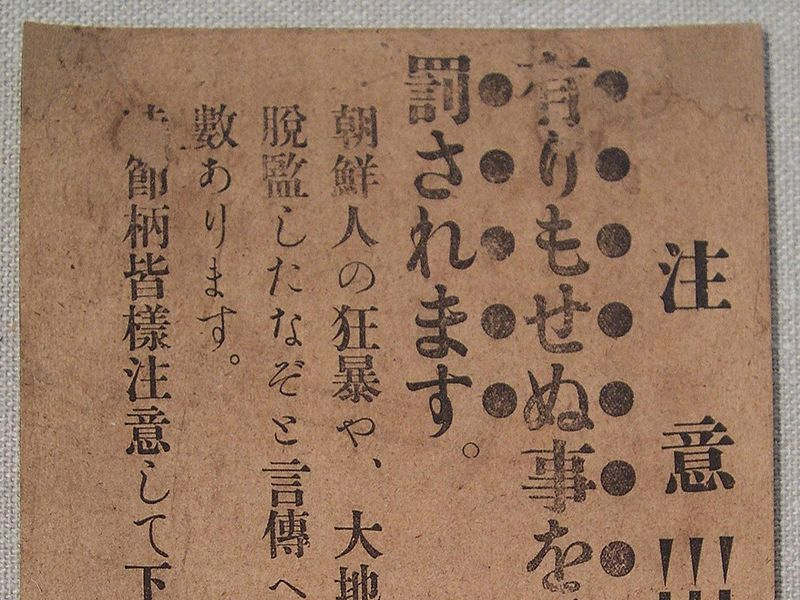 注意!!!
有りもせぬ事を
罰されます。
朝鮮人の狂暴や、大地
脱監したなぞと言傳へ
數あります。
節柄皆樣注意して下